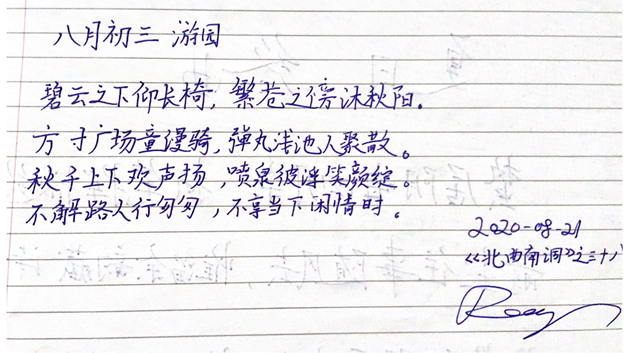 八月初三 游园
碧云之下仰长椅，繁苍之傍沐秋阳。
方寸广场童漫骑，弹丸浅池人聚散。
秋千上下欢声扬，喷泉彼涤笑颜绽。
不解路人行匆匆，不享当下闲情时。
2020-08-21
《北曲南调》之三十八